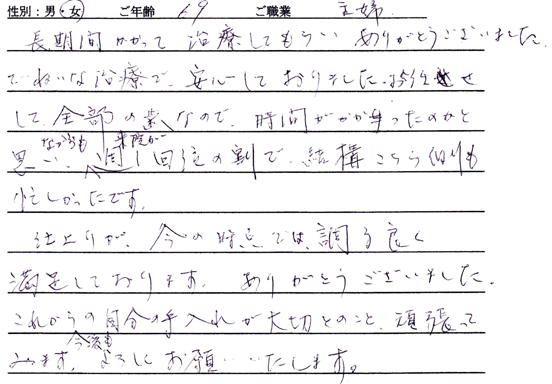 性別：男・女 ご年齢 69 ご職業 主婦
長期間かかって治療してもらい ありがとうございました。
ていねいな治療で、安心しておりました。お任せ
して、全部の歯なので、時間がかかったのかと
思いながらも、週1回位の割で、来院が結構こちら側も
忙しかったです。
仕上りが、今の時点では、調子良く
満足しております。ありがとうございました。
これからの自分の手入れが大切とのこと、頑張って
みます。今後もよろしくお願いいたします。